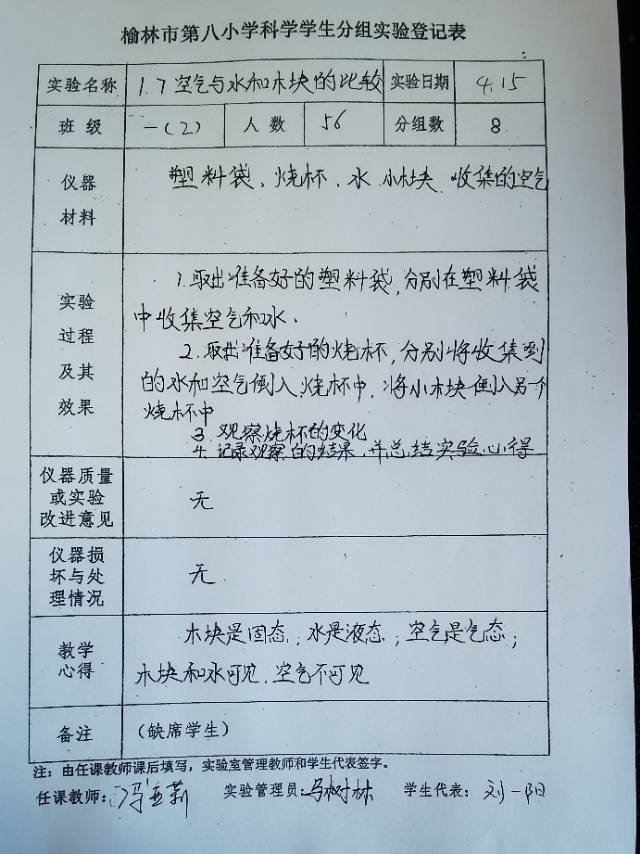 榆林市第八小学科学学生分组实验登记表
实验名称 1.7空气与水和木块的比较 实验日期 4.15
班级 一(2) 人数 56 分组数 8
仪器材料 塑料袋、烧杯、水、小木块、收集的空气
实验过程及其效果
1.取出准备好的塑料袋,分别在塑料袋
中收集空气和水.
2.取出准备好的烧杯,分别将收集到
的水和空气倒入烧杯中,将小木块倒入另个
烧杯中
3.观察烧杯的变化
4.记录观察的结果,并总结实验心得
仪器质量或实验改进意见 无
仪器损坏与处理情况 无
教学心得
木块是固态;水是液态;空气是气态;
木块和水可见,空气不可见
备注 (缺席学生)
注:由任课教师课后填写,实验室管理教师和学生代表签字。
任课教师:冯亚莉 实验管理员:马树林 学生代表:刘一阳